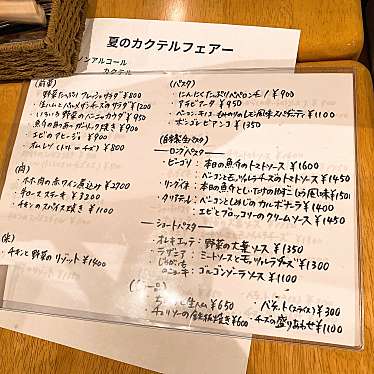 夏のカクテルフェアー
ノンアルコール
カクテル
(前菜)
・野菜たっぷりフレッシュサラダ ¥800
・生ハムとパルメザンチーズのサラダ ¥1200
・いろいろ野菜のバーニャカウダ ¥950
・魚介の ガーリック焼き ¥900
・エビのアヒージョ ¥900
・オムレツ (トマト or チーズ) ¥800
(肉)
・ホホ肉の赤ワイン煮込み ¥2700
・牛ロースステーキ ¥3200
・チキンのスパイス焼き ¥1100
(米)
・チキンと野菜のリゾット ¥1400
(パスタ)
・にんにくたっぷりペペロンチーノ ¥900
・アラビアータ ¥950
・ベーコン、 レモン風味スパゲティ ¥1100
・ボンゴレビアンコ ¥1350
(自家製生パスタ)
ロングパスタ
・ビーゴリ : 本日の魚介のトマトソース ¥1600
・ベーコンとモッツァレラチーズのトマトソース ¥1450
・リングイネ : 本日の魚介と
・タリアテッレ : ベーコンとしめじのカルボナーラ ¥1400
・エビとブロッコリーのクリームソース ¥1450
ショートパスタ
・オレキエッテ : 野菜の大葉ソース ¥1350
・ラザニア : ミートソースとモッツァレラチーズ ¥1300
・じゃがいものニョッキ : ゴルゴンゾーラソース ¥1100
生ハム ¥650
・チョリソーの鉄板焼き ¥600
・バゲット (スライス) ¥300
・チーズの盛りあわせ ¥1100